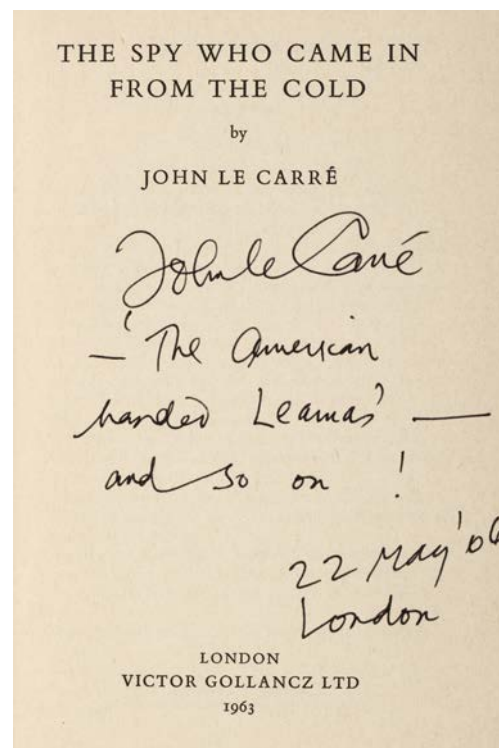 THE SPY WHO CAME IN
FROM THE COLD
by
JOHN LE CARRÉ
John le Carré
— 'The American
handed Leamas' —
and so on !
22 May '06
London
LONDON
VICTOR GOLLANCZ LTD
1963